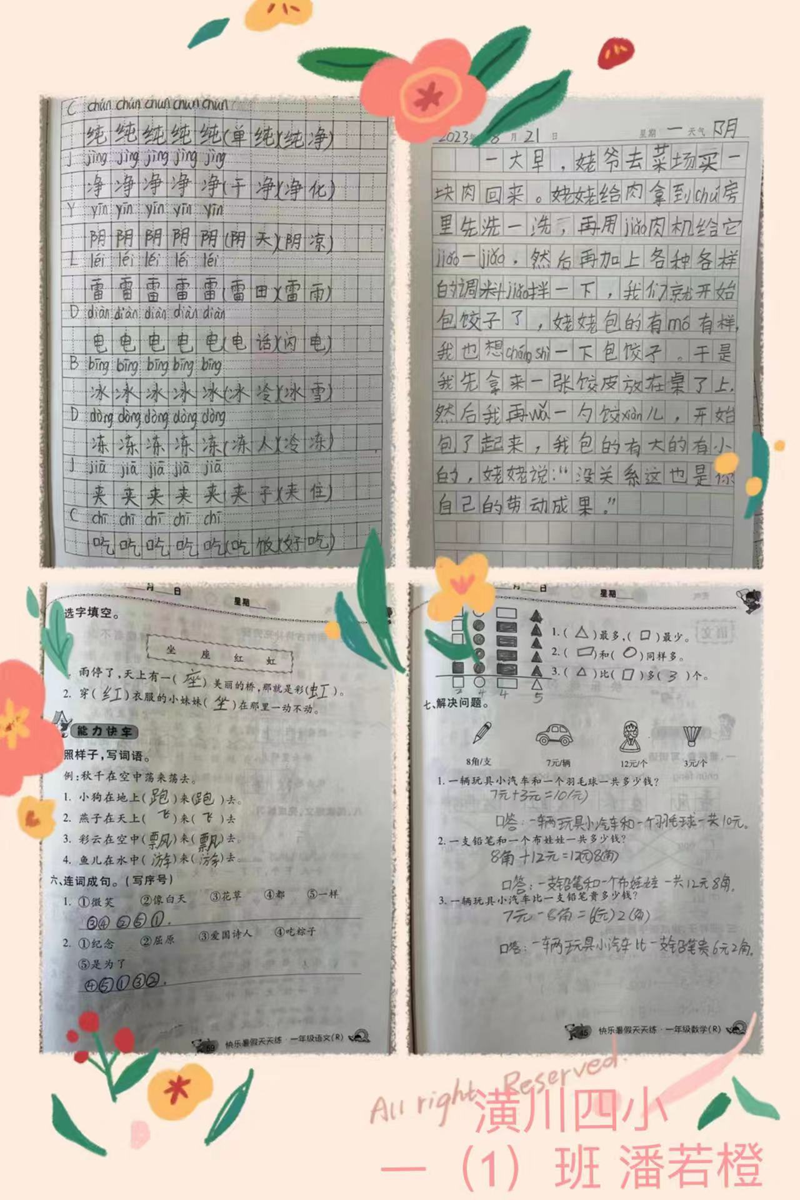 C chún chún chún chún chún
纯 纯 纯 纯 纯(单 纯)(纯 净)
J jìng jìng jìng jìng jìng
净 净 净 净 净(干 净)(净 化)
Y yīn yīn yīn yīn yīn
阴 阴 阴 阴 阴(阴 天)(阴 凉)
L léi léi léi léi léi
雷 雷 雷 雷 雷(雷 田)(雷 雨)
D diàn diàn diàn diàn diàn
电 电 电 电 电(电 话)(闪 电)
B bīng bīng bīng bīng bīng
冰 冰 冰 冰 冰(冰 冷)(冰 雪)
D dòng dòng dòng dòng dòng
冻 冻 冻 冻 冻(冻 人)(冷 冻)
J jiā jiā jiā jiā jiā
夹 夹 夹 夹 夹(夹 子)(夹 住)
C chī chī chī chī chī
吃 吃 吃 吃 吃(吃 饭)(好 吃)
2023年8月21日 星期一 天气阴
一大早，姥爷去菜场买一
块肉回来。姥姥给肉拿到chú房
里先洗一洗，再用jiǎo肉机给它
jiǎo一jiǎo，然后再加上各种各样
的调料jiǎo拌一下，我们就开始
包饺子了，姥姥包的有mó有样，
我也想cháng shì一下包饺子。于是
我先拿来一张饺皮放在桌子上，
然后我再wǎ一勺饺xiàn儿，开始
包了起来，我包的有大的有小
的，姥姥说：“没关系这也是你
自己的劳动成果。”
月 日 星期
选字填空。
坐 座 红 虹
雨停了，天上有一(座)美丽的桥，那就是彩(虹)。
2. 穿(红)衣服的小妹妹(坐)在那里一动不动。
能力快车
照样子，写词语。
例：秋千在空中荡来荡去。
1. 小狗在地上(跑)来(跑)去。
2. 燕子在天上(飞)来(飞)去。
3. 彩云在空中(飘)来(飘)去。
4. 鱼儿在水中(游)来(游)去。
六、连词成句。(写序号)
1. ①微笑 ②像白天 ③花草 ④都 ⑤一样
③④②⑤①.
2. ①纪念 ②屈原 ③爱国诗人 ④吃粽子
⑤是为了
④⑤①③②.
快乐暑假天天练·一年级语文(R)
月 日 星期
1. (△)最多，(□)最少。
2. (□)和(○)同样多。
3. (△)比(□)多(3)个。
2 4 4 5
七、解决问题。
8角/支 7元/辆 12元/个 3元/个
1. 一辆玩具小汽车和一个羽毛球一共多少钱？
7元+3元=10(元)
口答：一辆玩具小汽车和一个羽毛球一共10元。
2. 一支铅笔和一个布娃娃一共多少钱？
8角+12元=12元8(角)
口答：一支铅笔和一个布娃娃一共12元8角。
3. 一辆玩具小汽车比一支铅笔贵多少钱？
7元-8角=6(元)2(角)
口答：一辆玩具小汽车比一支铅笔贵6元2角。
快乐暑假天天练·一年级数学(R)
All right Reserved.
潢川四小
一（1）班 潘若橙